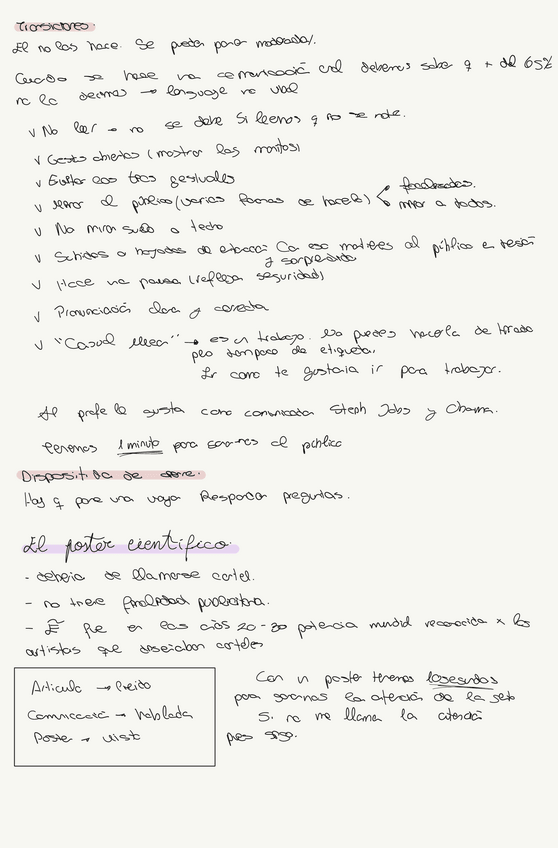 Transiciones:
El no las hace. Se pueden poner moderadas/.
Cuando se hace una comunicación oral debemos saber q + del 65%
no lo decimos → lenguaje no vbal
√ No leer → no se debe. Si leemos q no se note.
√ Gestos abiertos (mostrar las manitos)
√ Evitar los tics gestuales
√ Mirar al público (varias formas de hacerlo) < focalizados.
mirar a todos.
√ No mirar suelo o techo
√ Subidas o bajadas de entonación. Con eso mantienes al público en tensión
y sorprendido
√ Hacer una pausa (refleja seguridad)
√ Pronunciación clara y correcta
√ "Casual" → es un trabajo. No puedes hacerla de
pero tampoco de etiqueta.
Ir como te gustaría ir para trabajar.
Al profe le gusta como comunicador Steph Jobs y
Tenemos 1 minuto para ganarnos al público
Dispositiva de cierre.
Hay q poner una vaya Responder preguntas.
El poster científico.
- debería de llamarse cartel.
- no tiene finalidad publicitaria.
- E fue en los años 20-30 potencia mundial reconocida x los
artistas que diseñaban carteles
Articulo → leido
Comunicación → hablada
Poster → visto
Con un poster tenemos 10 segundos
para ganarnos la atención de la gente
Si no me llama la atención
pues sigo.